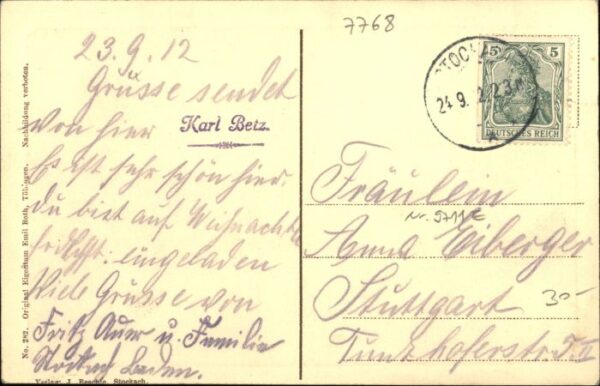 7768
23.9.12
Grüsse sendet
von hier
Karl Betz.
Es ist sehr schön hier.
du bist auf Weihnacht
eingeladen
Viele Grüsse von
Fritz Auer u. Familie
Stockach Baden.
Verlag: J. Reschle, Stockach.
No. 282. Original Eigentum Emil Roth, Tübingen. Nachbildung verboten.
STOCKA
24.9.12.2-3N
5 5
DEUTSCHES REICH
Fräulein
Nr. 5711E
Anna Eiberger
Stuttgart
30-